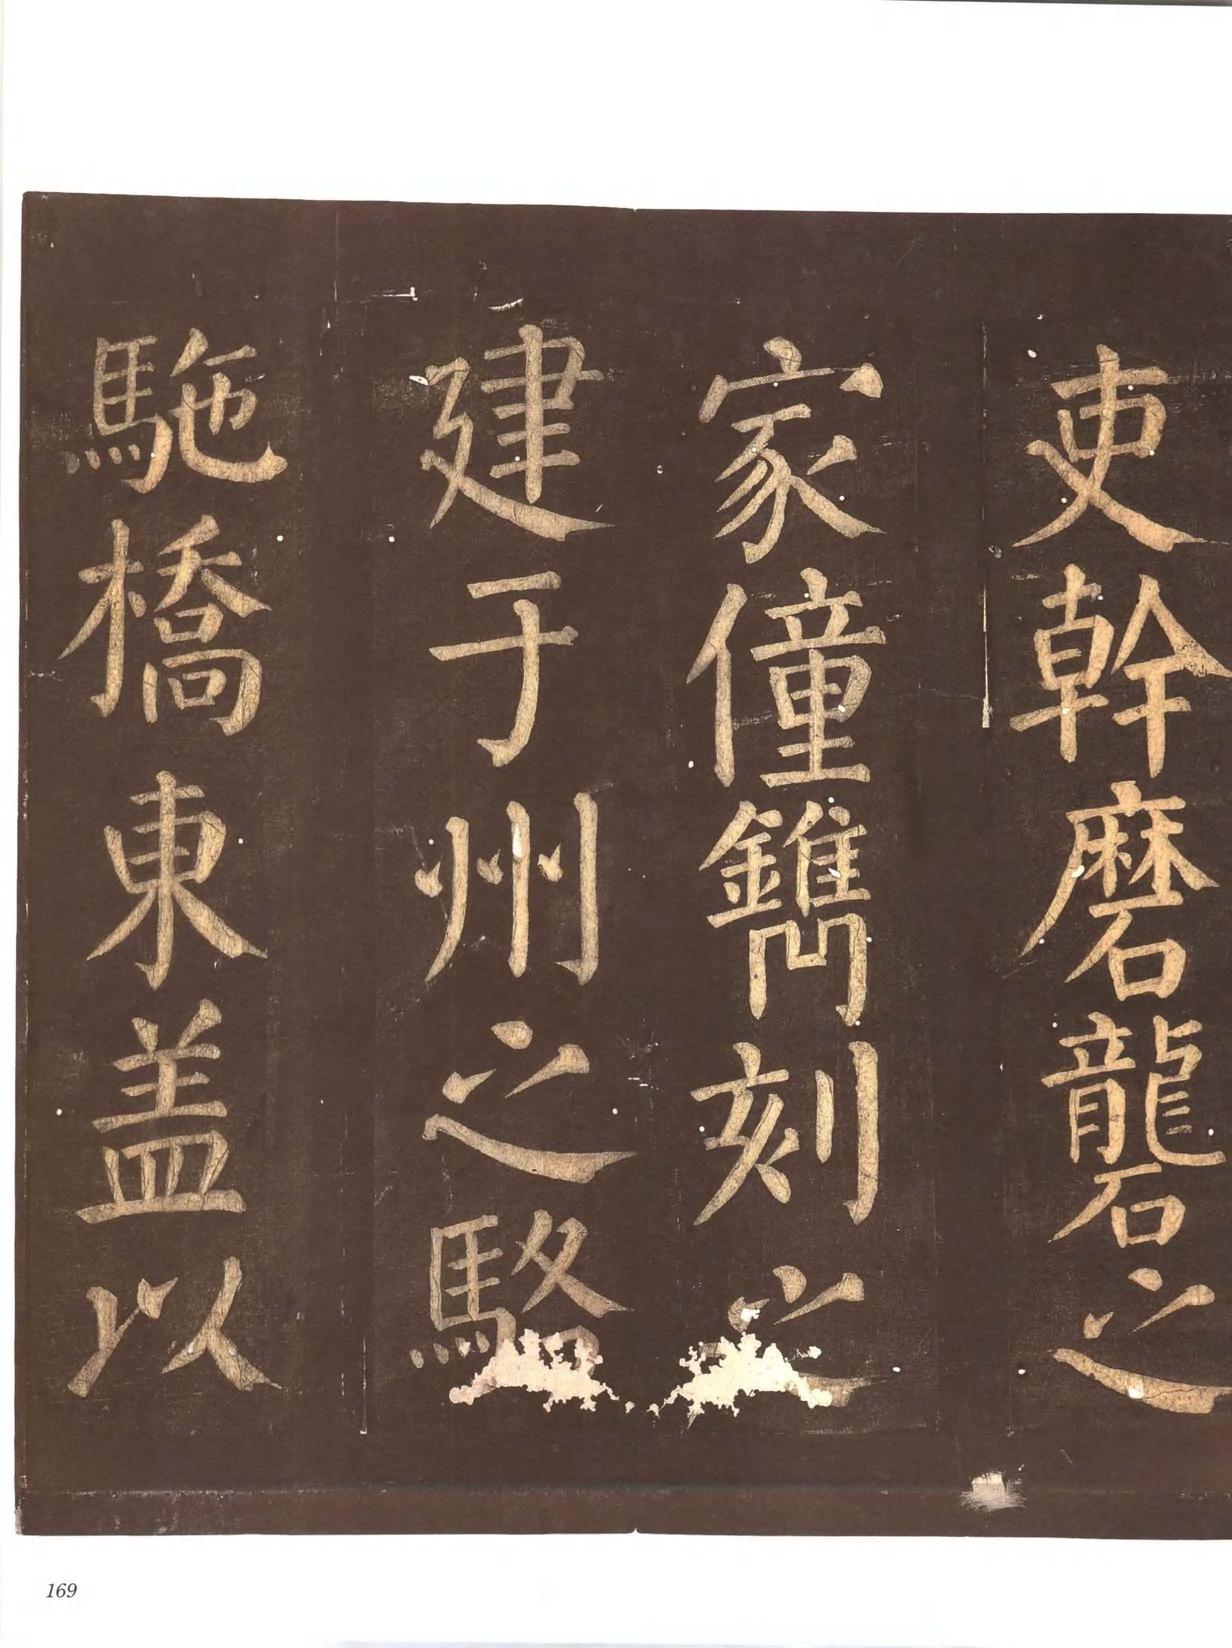 吏幹磨礱之
家僮鐫刻之
建于州之駱
駞橋東盖以
169